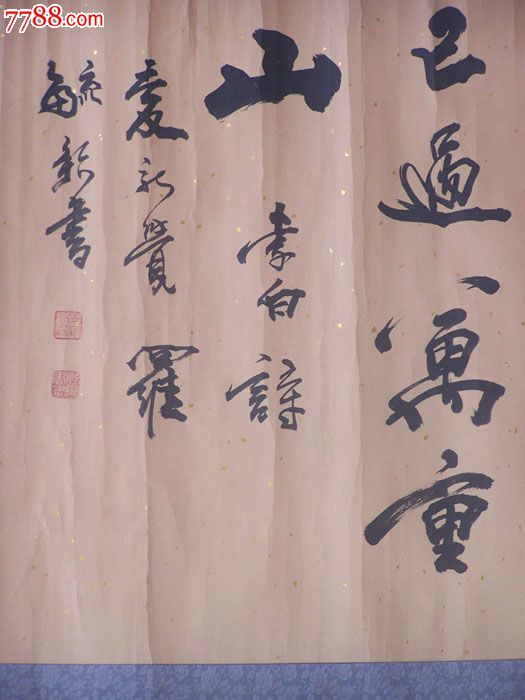 7788.com
已過萬重
山
李白詩
愛新覺羅
毓彩書